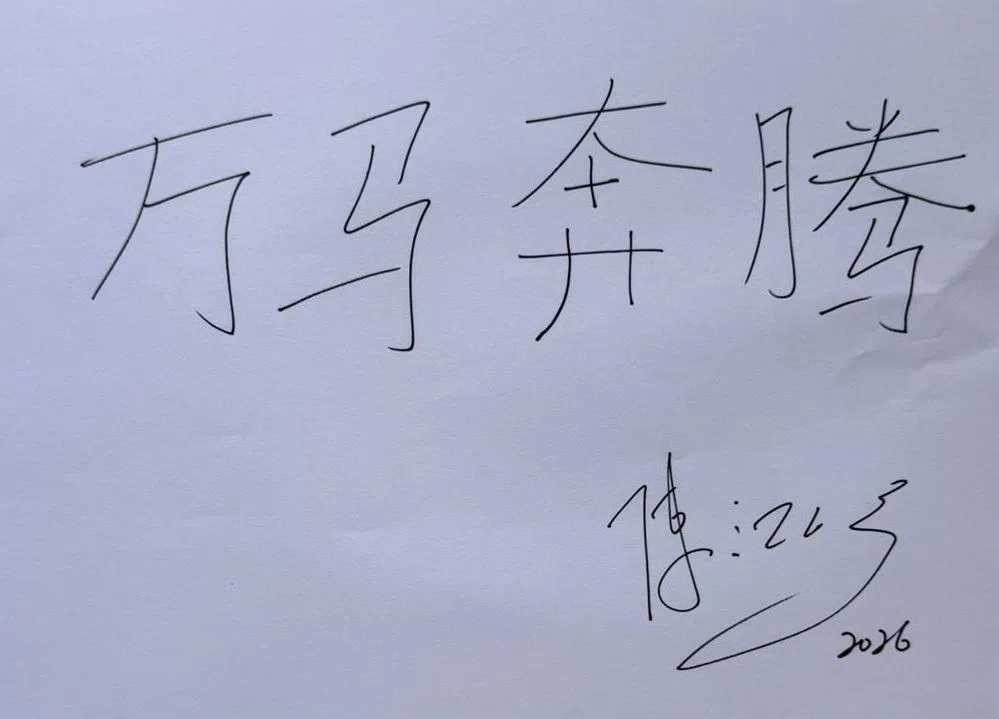 万马奔腾
2026